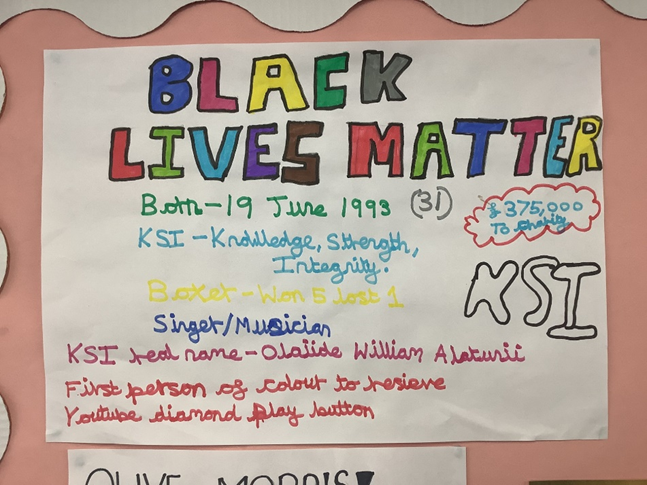 BLACK
LIVES MATTER
Born-19 June 1993 (31)
£375,000
To charity
KSI -Knowlledge, Strength,
Integrity.
KSI
Boxer-Won 5 lost 1
Singer/Musician
KSI real name-Olajide William Alatunji
First person of colour to resieve
Youtube diamond play button
OLIVE MORRIS!